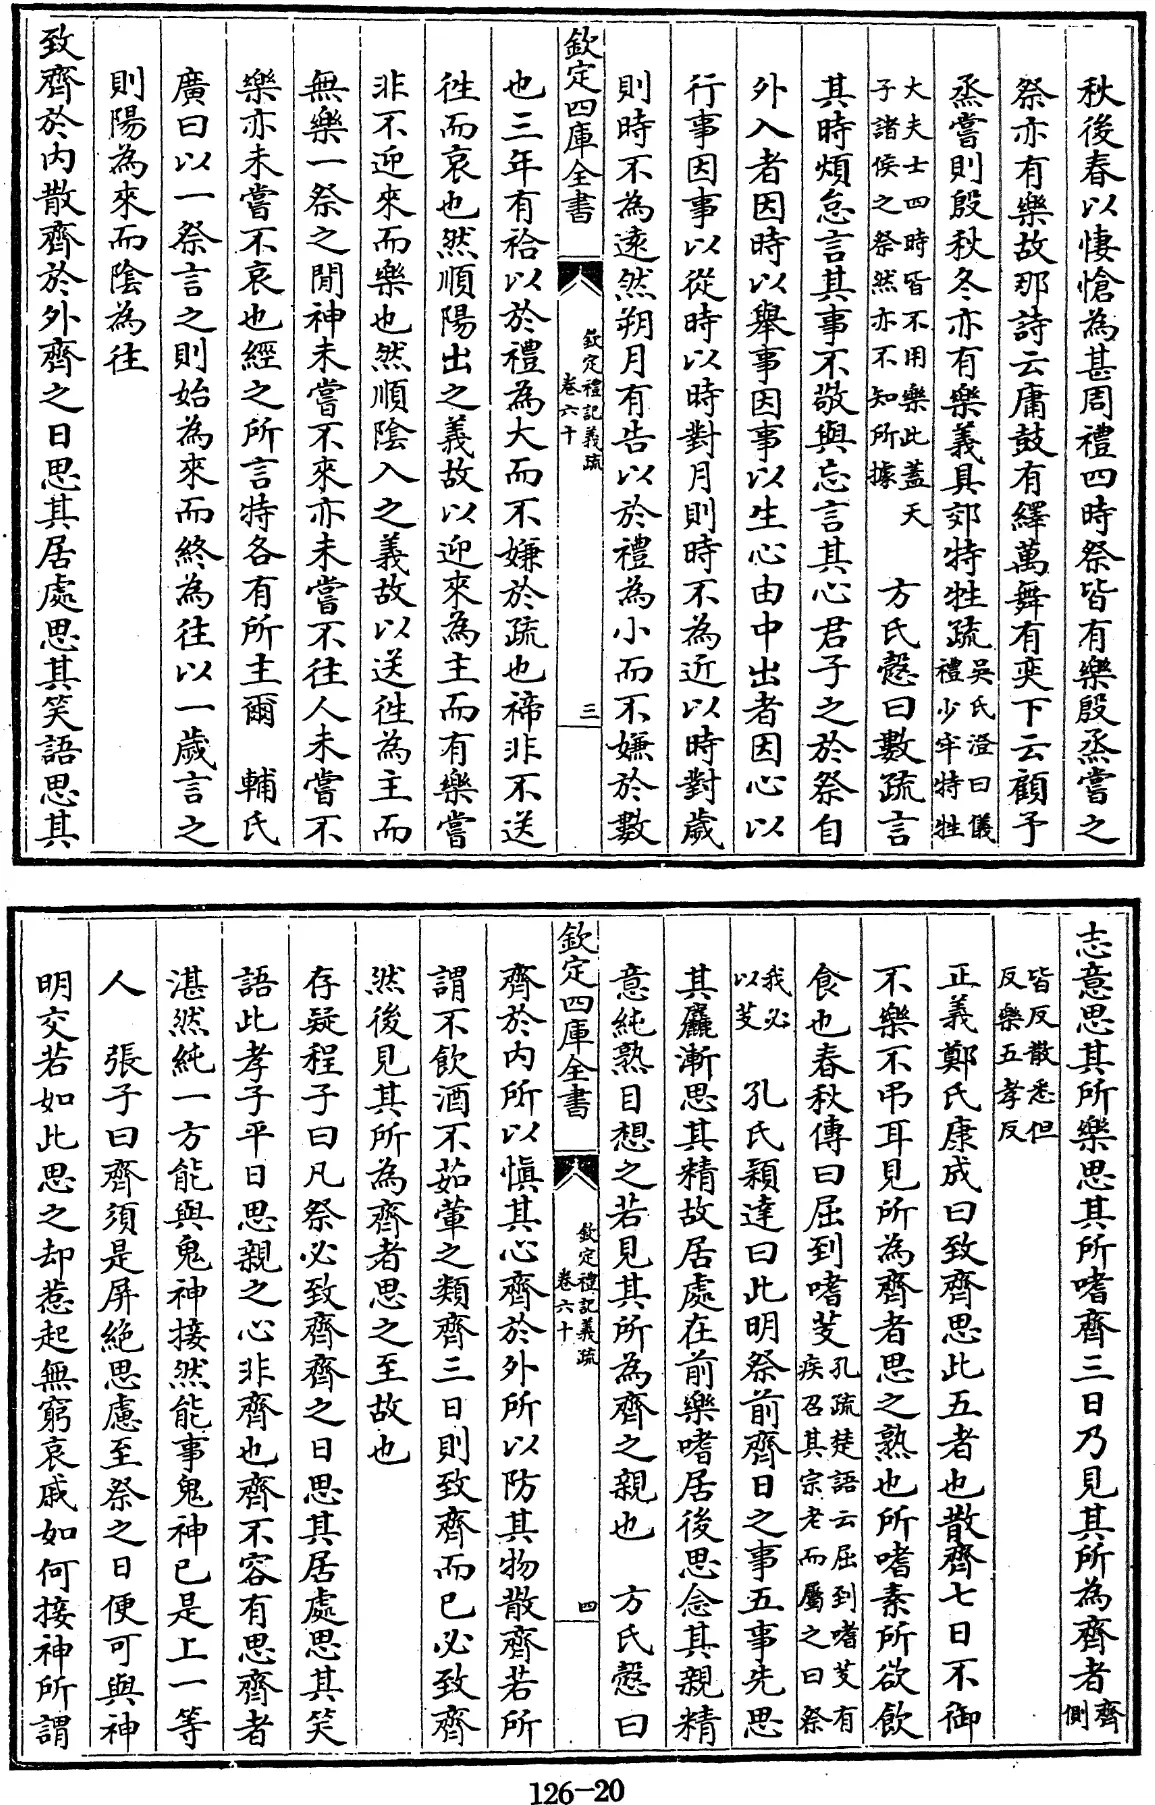 秋後春以悽愴為甚周禮四時祭皆有樂殷烝嘗之
祭亦有樂故那詩云庸鼓有繹萬舞有奕下云顧予
烝嘗則殷秋冬亦有樂義具郊特牲疏吳氏澄曰儀禮少牢特牲
大夫士四時皆不用樂此蓋天子諸侯之祭然亦不知所據 方氏慤曰數疏言
其時煩怠言其事不敬與忘言其心君子之於祭自
外入者因時以舉事因事以生心由中出者因心以
行事因事以從時以時對月則時不為近以時對歲
則時不為遠然朔月有告以於禮為小而不嫌於數
欽定四庫全書 欽定禮記義疏 卷六十 三
也三年有祫以於禮為大而不嫌於疏也禘非不送
徃而哀也然順陽出之義故以迎來為主而有樂嘗
非不迎來而樂也然順陰入之義故以送徃為主而
無樂一祭之間神未嘗不來亦未嘗不徃人未嘗不
樂亦未嘗不哀也經之所言特各有所主爾 輔氏
廣曰以一祭言之則始為來而終為徃以一歲言之
則陽為來而陰為徃
致齊於内散齊於外齊之日思其居處思其笑語思其
志意思其所樂思其所嗜齊三日乃見其所為齊者齊側
皆反散悉但反樂五孝反
正義鄭氏康成曰致齊思此五者也散齊七日不御
不樂不弔耳見所為齊者思之熟也所嗜素所欲飲
食也春秋傳曰屈到嗜芰孔疏楚語云屈到嗜芰有疾召其宗老而屬之曰祭
我必以芰 孔氏穎達曰此明祭前齊日之事五事先思
其麤漸思其精故居處在前樂嗜居後思念其親精
意純熟目想之若見其所為齊之親也 方氏慤曰
欽定四庫全書 欽定禮記義疏 卷六十 四
齊於内所以慎其心齊於外所以防其物散齊若所
謂不飲酒不茹葷之類齊三日則致齊而已必致齊
然後見其所為齊者思之至故也
存疑程子曰凡祭必致齊齊之日思其居處思其笑
語此孝子平日思親之心非齊也齊不容有思齊者
湛然純一方能與鬼神接然能事鬼神已是上一等
人 張子曰齊須是屏絶思慮至祭之日便可與神
明交若如此思之却惹起無窮哀戚如何接神所謂
126-20